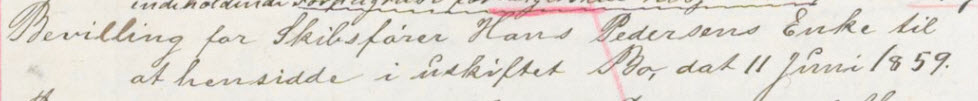 Bevilling for Skibsfører Hans Pedersens Enke til
at hensidde i uskiftet Bo, dat 11 Juni 1859.